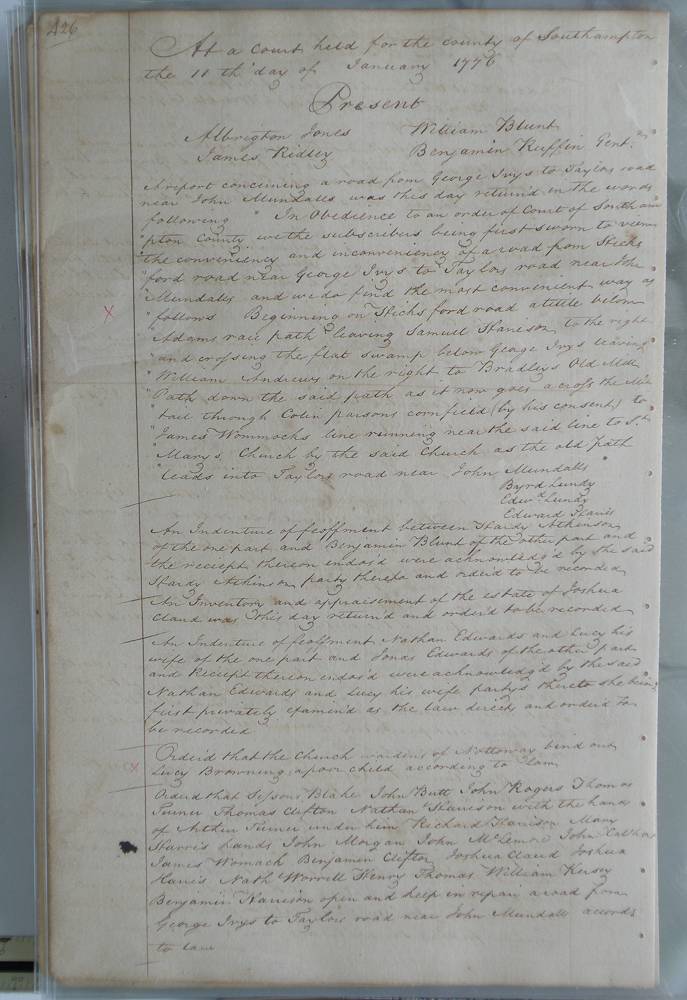 426
At a court held for the county of Southampton
the 11th day of January 1776
Present
Albrigton Jones William Blunt
James Ridley Benjamin Ruffin Gent.
A report concerning a road from George Ivys to Taylors road
near John Mundalls was this day return'd in the words
following " In Obedience to an order of Court of Southam
"pton County we the subscribers being first sworn to view
"the conveniency and inconveniency of a road from Hicks
"ford road near George Ivys to Taylors road near John
"Mundalls and we do find the most convenient way as
"follows Beginning on Hicksford road a little below
"Adams race path leaving Samuel Harrison to the right
"and crossing the flat swamp below George Ivys leaving
"William Andrews on the right to Bradleys Old Mill
"Path down the said path as it now goes across the Mill
"tail through Colin parsons cornfield (by his consent) to
"James Wommocks line running near the said line to St.
"Marys Church by the said Church as the old path
"leads into Taylors road near John Mundalls
Byrd Lundy
Edwd. Lundy
Edward
An Indenture of feoffment between Hardy Atkinson
of the one part and Benjamin Blunt of the other part and
the receipt thereon endors'd were acknowledg'd by the said
Hardy Atkinson party thereto and order'd to be recorded
An Inventory and appraisement of the estate of Joshua
Claud was this day return'd and order'd to be recorded
An Indenture of feoffment Nathan Edwards and Lucy his
wife of the one part and Jonas Edwards of the other part
and Receipt thereon endors'd were acknowledg'd by the said
Nathan Edwards and Lucy his wife partys thereto she being
first privately examin'd as the law directs and order'd to
be recorded
Order'd that the Church wardens of Nottoway bind out
Lucy Browning a poor child according to Law
Order'd that Sessons Blake John Butt John Rogers Thomas
Turner Thomas Clifton Nathan Harrison with the hands
of Arthur Turner under him Richard Harrison Mary
Harris's hands John Morgan John McLemore John
James Womack Benjamin Clifton Joshua Claud Joshua
Harris Nath Worrell Henry Thomas William Kersey
Benjamin Harrison open and keep in repair a road from
George Ivys to Taylors road near John Mundalls accords
to law